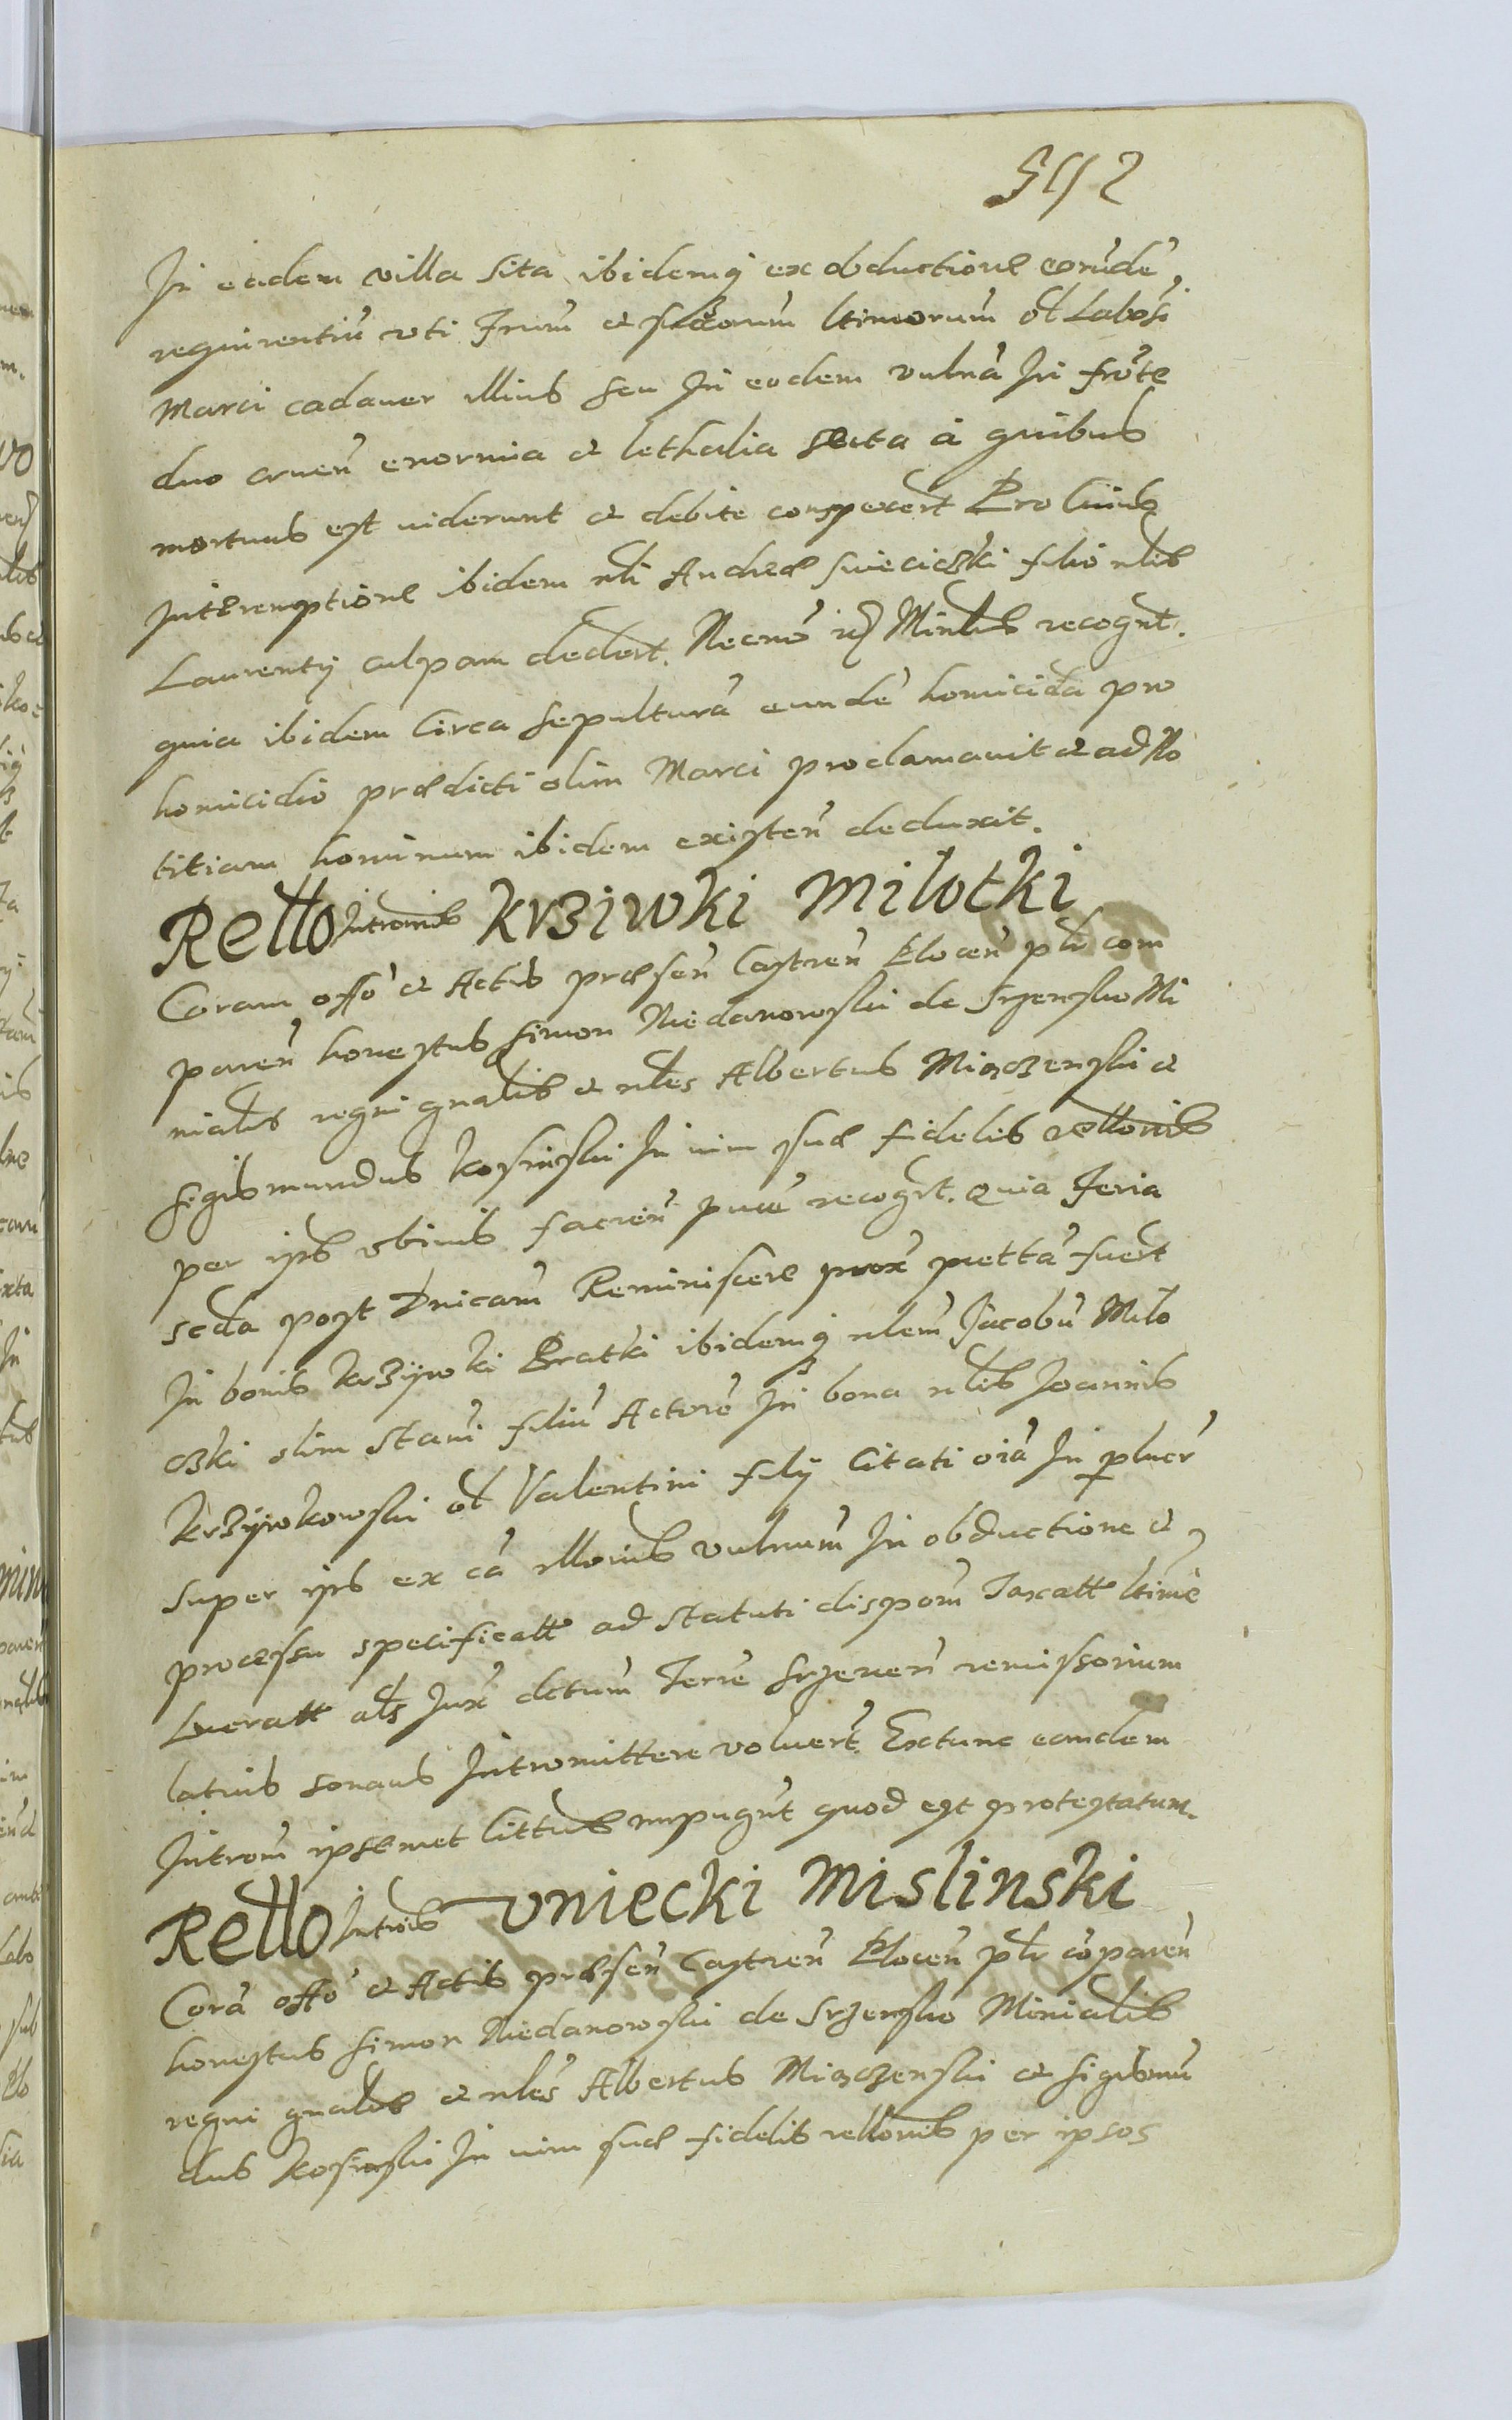 In eadem villa sita ibidemq ex obductione eorūdē
requirentiū uti Frum et sucorum ltimorum ol Labosi
Marci cadaver illius seu In eodem vulnā In frōte
duo cruen enormia et lethalia secta a quibus
mortuus est viderunt et debite conspexert Pro Cuius
Interemptione ibidem nli Andreæ Swieciczki filio nlis
Laurentij culpam dedert. Necnō id Minlis recognt.
quia ibidem Circa sepulturā eundē homicida pro
homicidio prædicti olim Marci proclamavit et ad No
titiam hominum ibidem existen deduxit.
Rello Intromis Krziwki Milotki
Coram offo et Actis præsen Castren Plocen plr com
paren honestus Simon Niedanowski de Srzensko Mi
nialis regni gnalis et nles Albertus Miączenski et
Sigismundus Kosinski In vim suæ fidelis rellonis
per ips obinis facien puce recognt. Quia Feria
scda post Dnicam Reminiscere prox prettā fuert
In bonis Krzywki Bratki ibidemq nlem Jacobū Milo
czki olim Stani filiū Actorē In bona nlis Joannis
Krzywkowski ol Valentini filij Citati oiā In plucr
super ips ex cā rllonis vulnum In obductione et
processu specificatt ad statuti dispom Taxatt ltime
Lucratt als Jux dctum Terre Srzenen remissorium
latius sonans Intromittere voluert. Extunc eamdem
Introm ipsemet Cittus impugnt quod est protestatum.
Rello Introis Uniecki Mislinski
Corā offo et Actis præsen Castren Plocen plr cōparen
honestus Simon Niedanowski de Srzensko Minialis
regni gnalis et nles Albertus Miączenski et Sigismū
dus Kosinski In vim suæ fidelis rellonis per ipsos